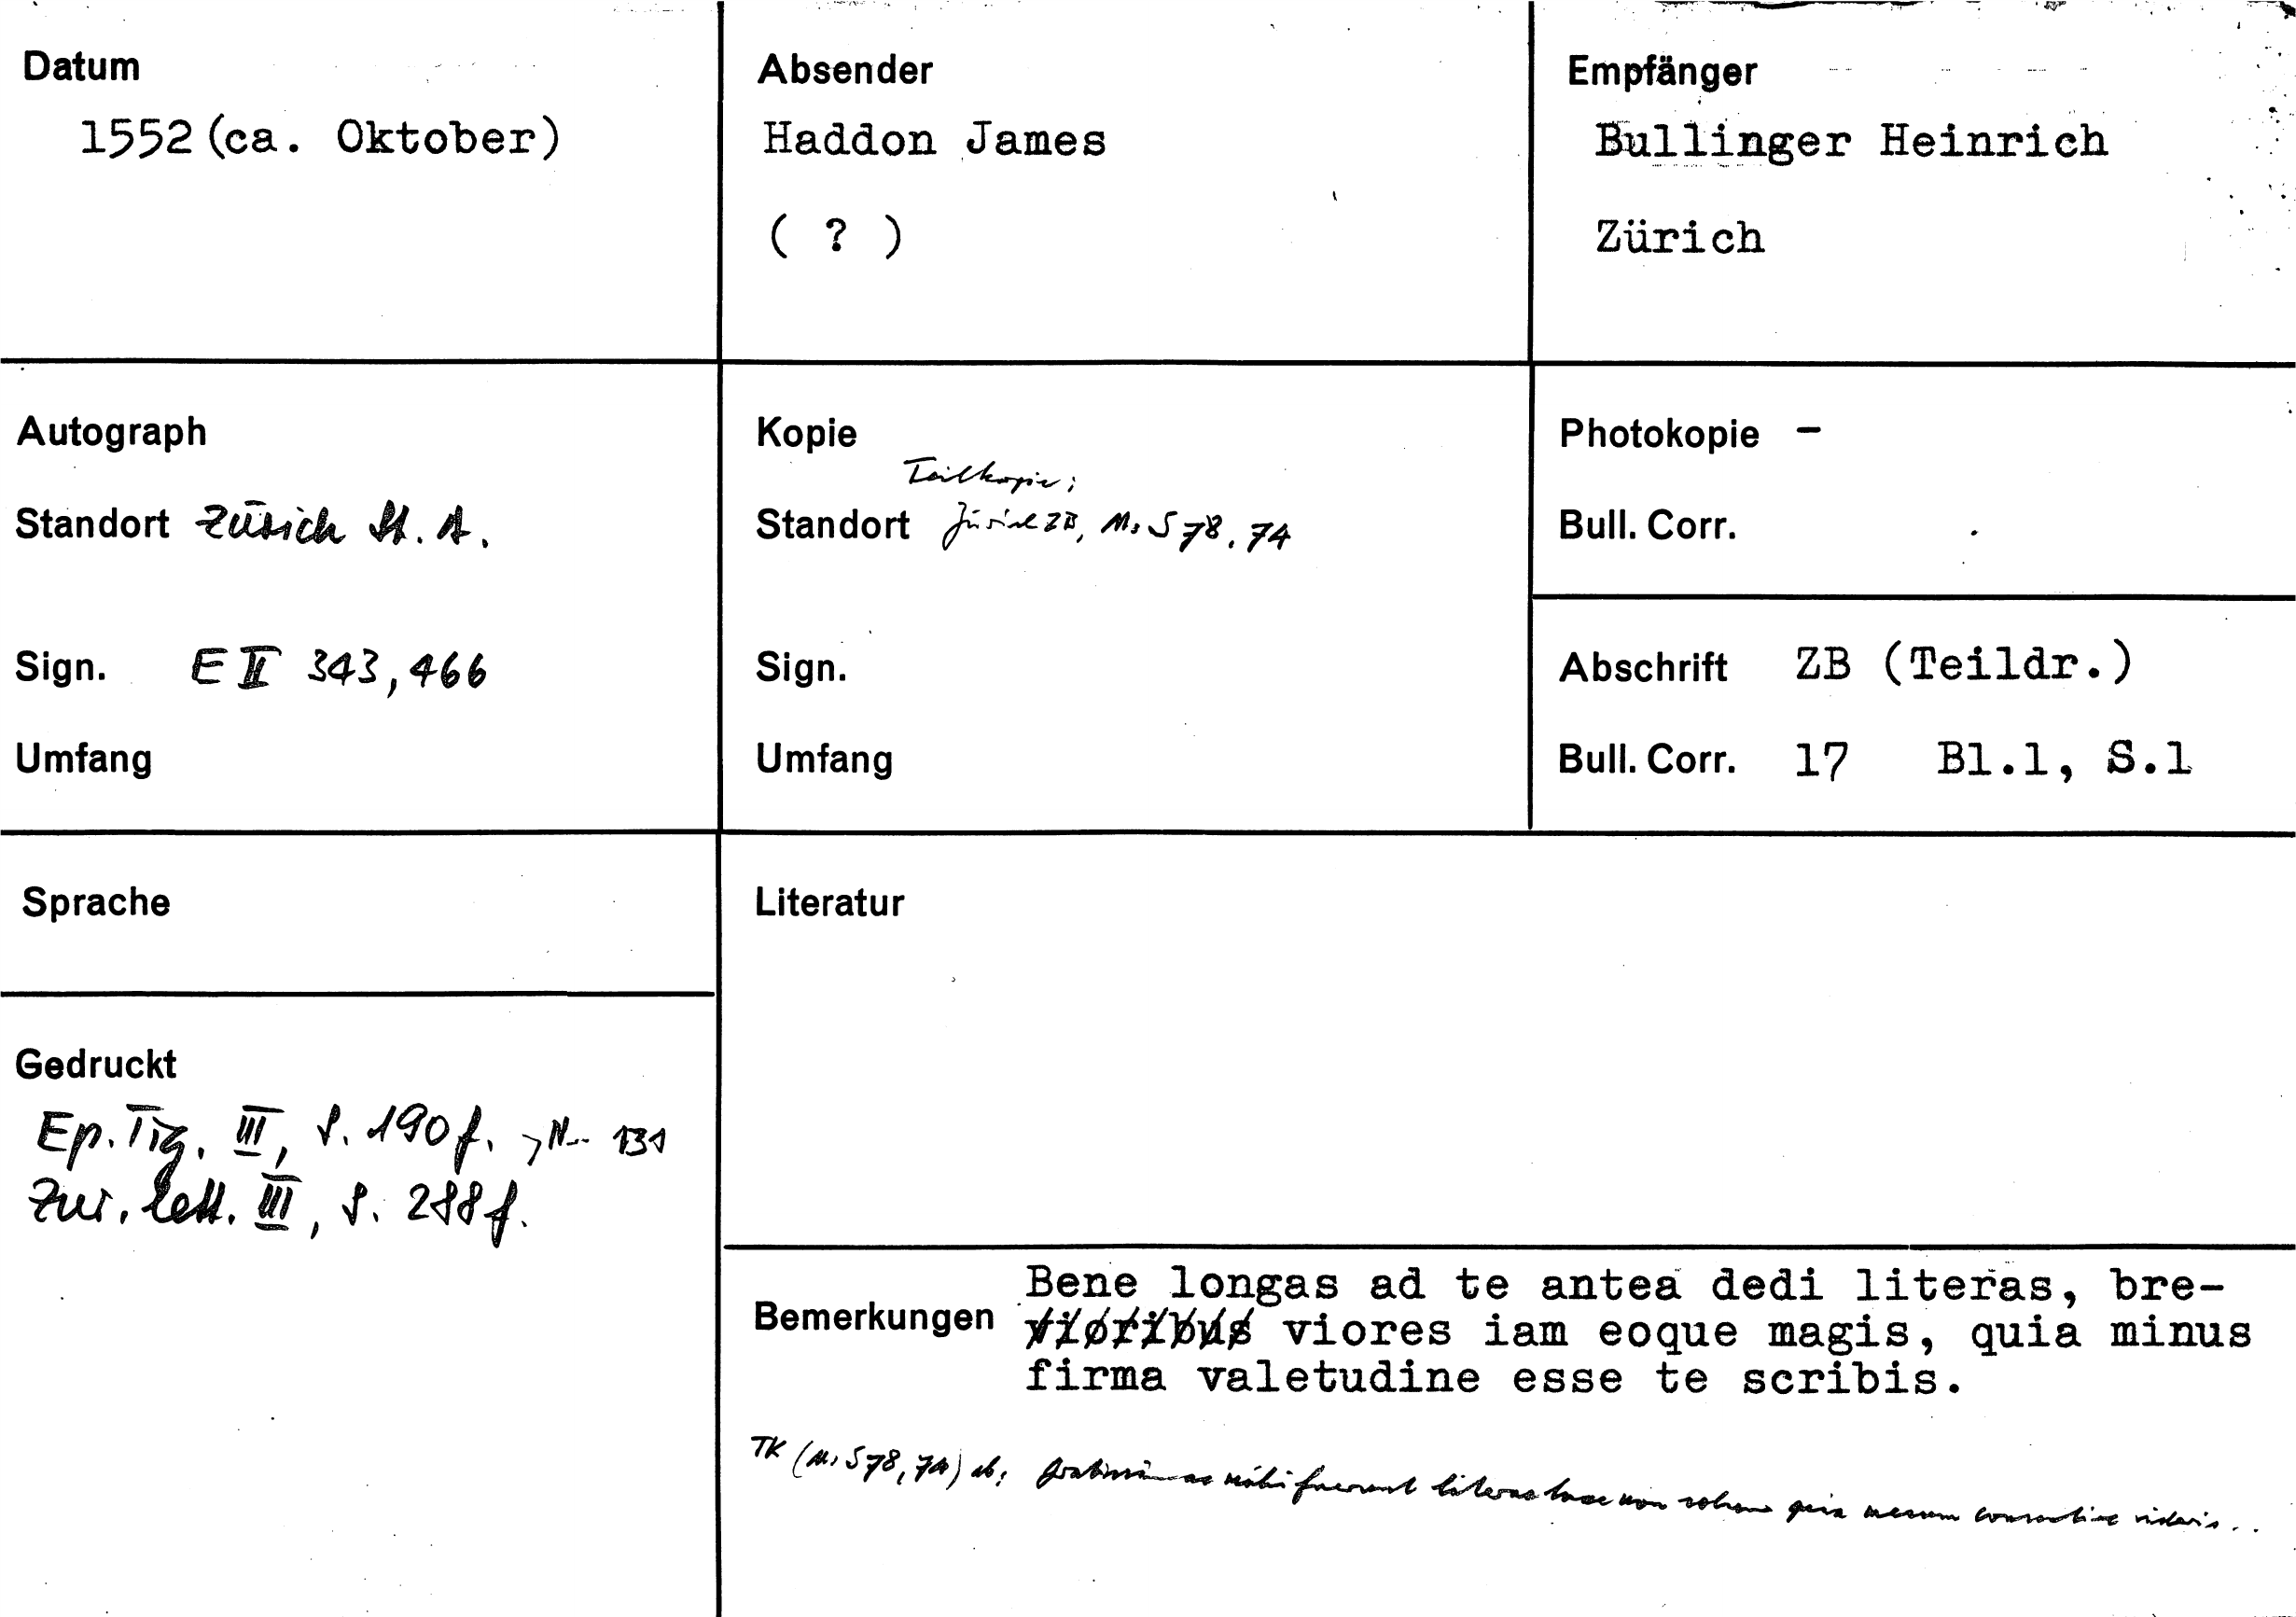 Datum
1552 (ca. Oktober)
Absender
Haddon James
( ? )
Empfänger
Bullinger Heinrich
Zürich
Autograph
Standort Zürich St. A.
Sign. E II 343, 466
Umfang
Kopie
Teilkopie:
Standort Zürich ZB, Ms S 78, 74
Sign.
Umfang
Photokopie –
Bull. Corr.
Abschrift ZB (Teildr.)
Bull. Corr. 17 Bl.1, S.1
Sprache
Gedruckt
Ep. Tig. III, S. 190 f., Nr. 131
Zur. Lett. III, S. 288 f.
Literatur
Bemerkungen
Bene longas ad te antea dedi literas, bre-
vioribus viores iam eoque magis, quia minus
firma valetudine esse te scribis.
TK (Ms S 78, 74) ab: Gratissimae mihi fuerunt literae tuae non solum quia meum videris..